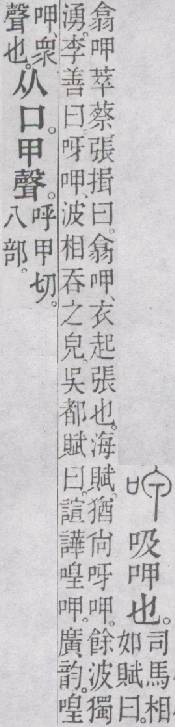 吸呷也。司馬相
如賦曰。
翕呷萃蔡。張揖曰。翕呷、衣起張也。海賦。猶尙呀呷。餘波獨
湧。李善曰。呀呷、波相吞之皃。吳都賦曰。諠譁喤呷。廣韵。喤
呷、衆
聲也。
从口。甲聲。
呼甲切。
八部。